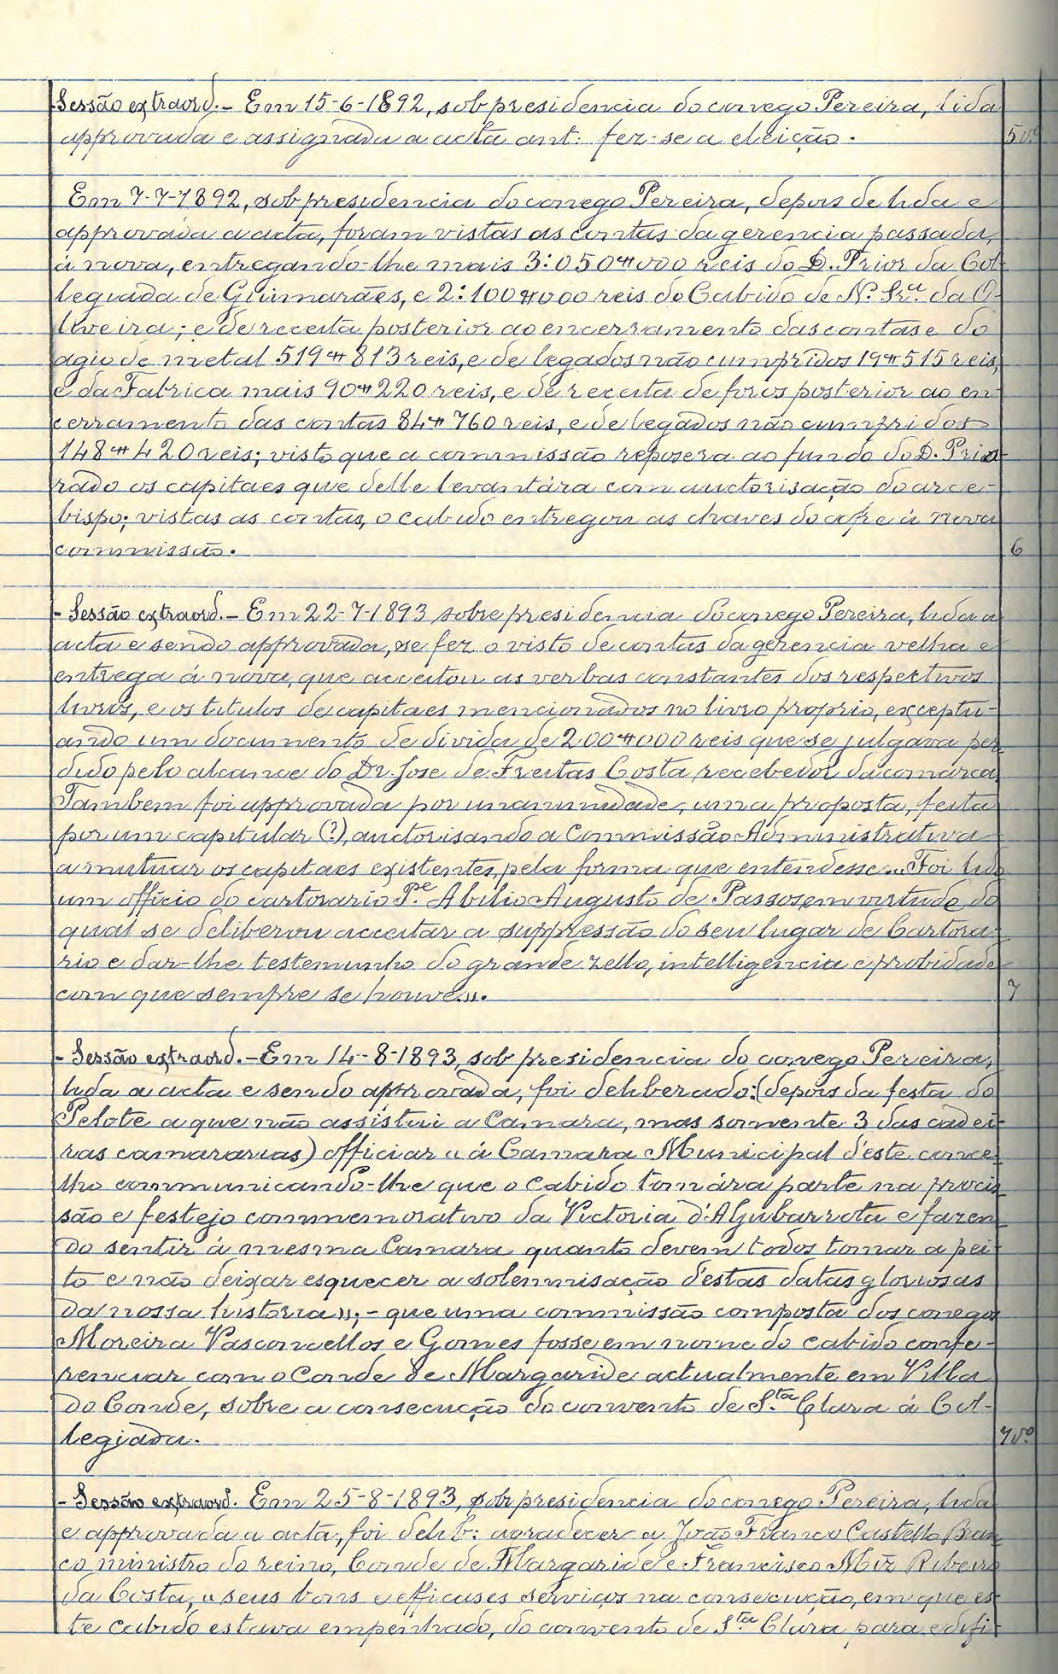 Sessão extraord. - Em 15-6-1892, sob presidencia do conego Pereira, lida
approvada e assignada a acta ant: fez-se a eleição. 5vº
Em 7-7-1892, sob presidencia do conego Pereira, depois de lida e
approvada a acta, foram vistas as contas da gerencia passada,
á nova, entregando-lhe mais 3:050#000 reis do D. Prior da Col-
legiada de Guimarães, e 2:100#000 reis do Cabido de N. Srª da O-
liveira; e de receita posterior ao encerramento das contas e do
agio de metal 519#813 reis, e de legados não cumpridos 19#515 reis,
e da Fabrica mais 90#220 reis, e de receita de foros posterior ao en-
cerramento das contas 84#760 reis, e de legados não cumpridos
148#420 reis; visto que a commissão reposera ao fundo do D. Prio-
rado os capitaes que delle levantára com auctorisação do arce-
bispo; vistas as contas, o cabido entregou as chaves do cofre á nova
commissão. 6
- Sessão extraord. - Em 22-7-1893, sobre presidencia do conego Pereira, lida a
acta e sendo approvada, se fez o visto de contas da gerencia velha e
entrega á nova, que acceitou as verbas constantes dos respectivos
livros, e os titulos de capitaes mencionados no livro proprio, exceptu-
ando um documento de divida de 200#000 reis que se julgava per
dido pelo alcance do Dr. Jose de Freitas Costa, recebedor da comarca.
Tambem foi approvada por unanimidade, uma proposta, feita
por um capitular (?), auctorisando a Commissão Administrativa
a mutuar os capitaes existentes, pela forma que entendesse... Foi lido
um officio do cartorario Pe. Abilio Augusto de Passos, em virtude do
qual se deliberou acceitar a suppressão do seu lugar de Cartora-
rio e dar-lhe testemunho do grande zello, intelligencia e probidade
com que sempre se houve». 7
- Sessão extraord. - Em 14-8-1893, sob presidencia do conego Pereira,
lida a acta e sendo approvada, foi deliberado: (depois da festa do
Pelote a que não assistiu a Camara, mas somente 3 das cadei-
ras camararias) officiar «á Camara Municipal d'este conce
lho communicando-lhe que o cabido tomára parte na procis
são e festejo commemorativo da Victoria d'Aljubarrota e fazen
do sentir á mesma Camara quanto devem todos tomar a pei-
to e não deixar esquecer a solemnisação d'estas datas gloriosas
da nossa historia»; - que uma commissão composta dos conegos
Moreira Vasconcellos e Gomes fosse em nome do cabido confe-
renciar com o Conde de Margaride, actualmente em Villa
do Conde, sobre a consecução do convento de S.ta Clara á Col-
legiada. 7vº
- Sessão extraord. Em 25-8-1893, sob presidencia do conego Pereira, lida
e approvada a acta, foi delib: agradecer a João Franco Castello Bran
co ministro do reino, Conde de Margaride e Francisco Miz Ribeiro
da Costa, «seus bons e efficases serviços na consecução, em que es-
te cabido estava empenhado, do convento de S.ta Clara para edifi-